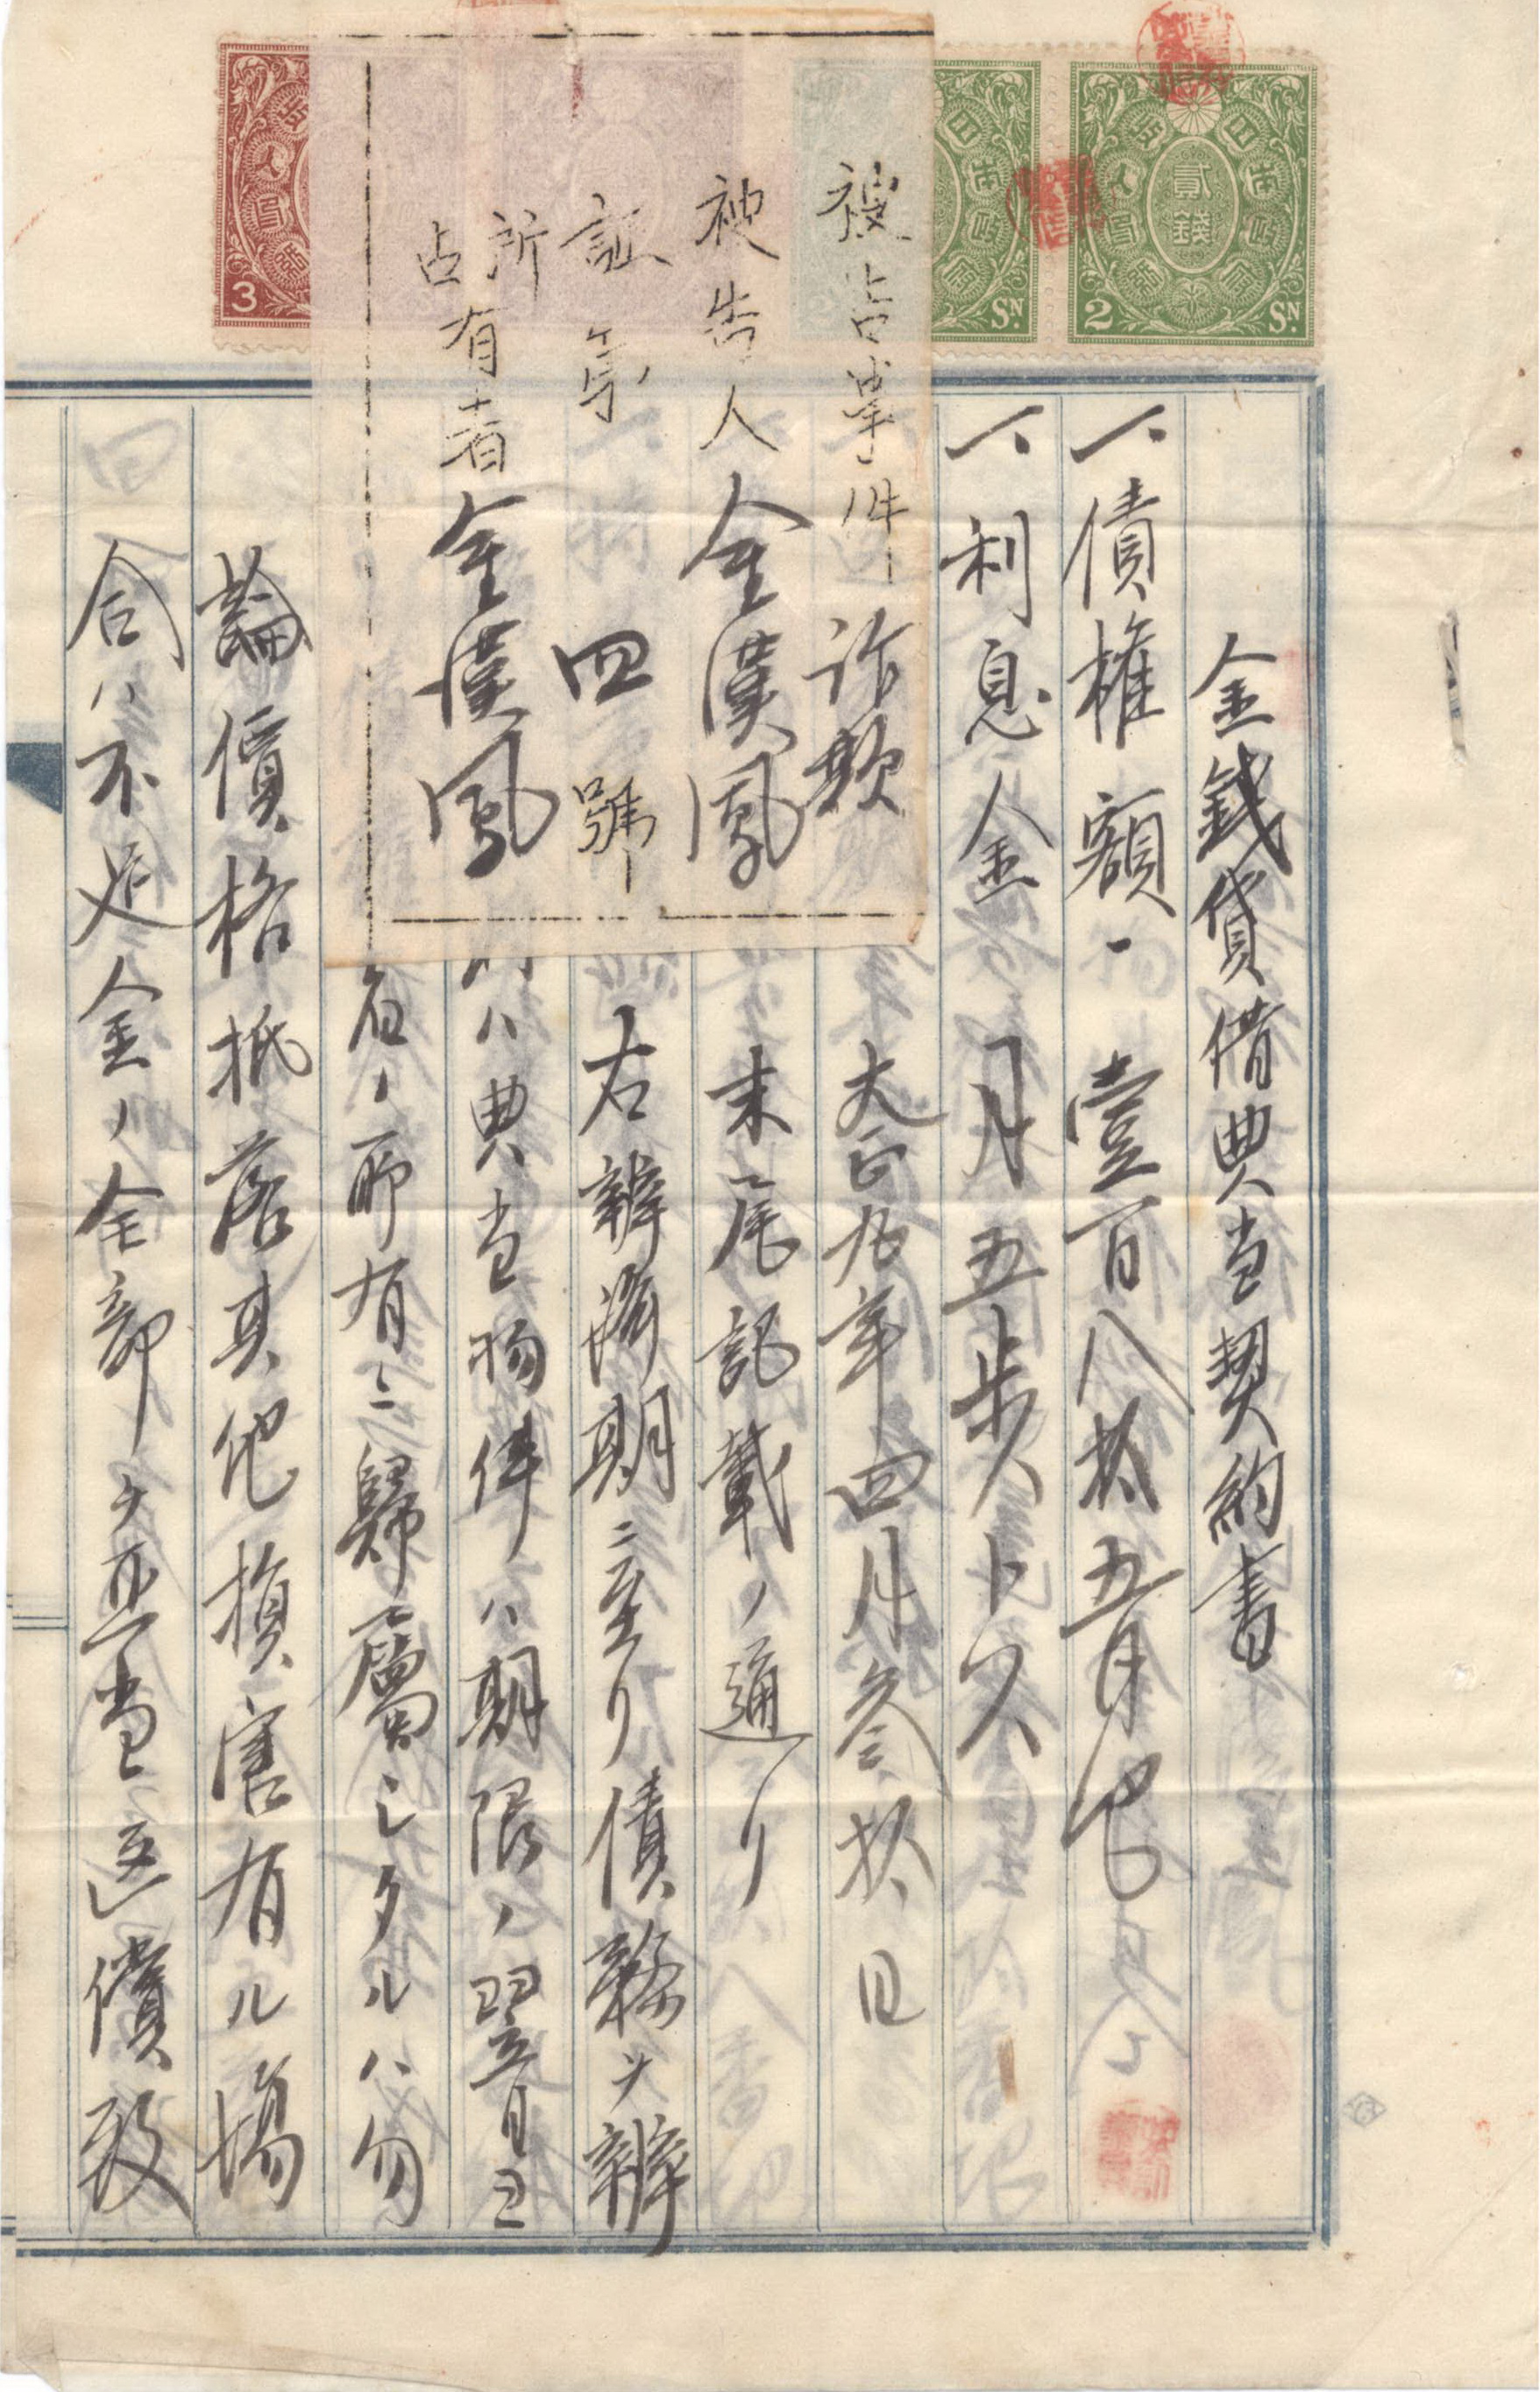 金錢貸借典当契約書
一、債權額 壹百八拾五円也
一、利息金 月五步
大正九年四月参拾日
末尾記載ノ通リ
右辨濟期ニ至リ債務ヲ辨
ハ典当物件ハ期限ノ翌日ヨ
ノ所有ニ歸屬シタルハ勿
論價格抵落其他損害有ル場
合ハ不足金ノ全部ヲ 当 償致
事件 詐欺
被告人 金漢鳳
証第四號
所有者
占
金漢鳳
貳錢
2 SN.
SN.
3